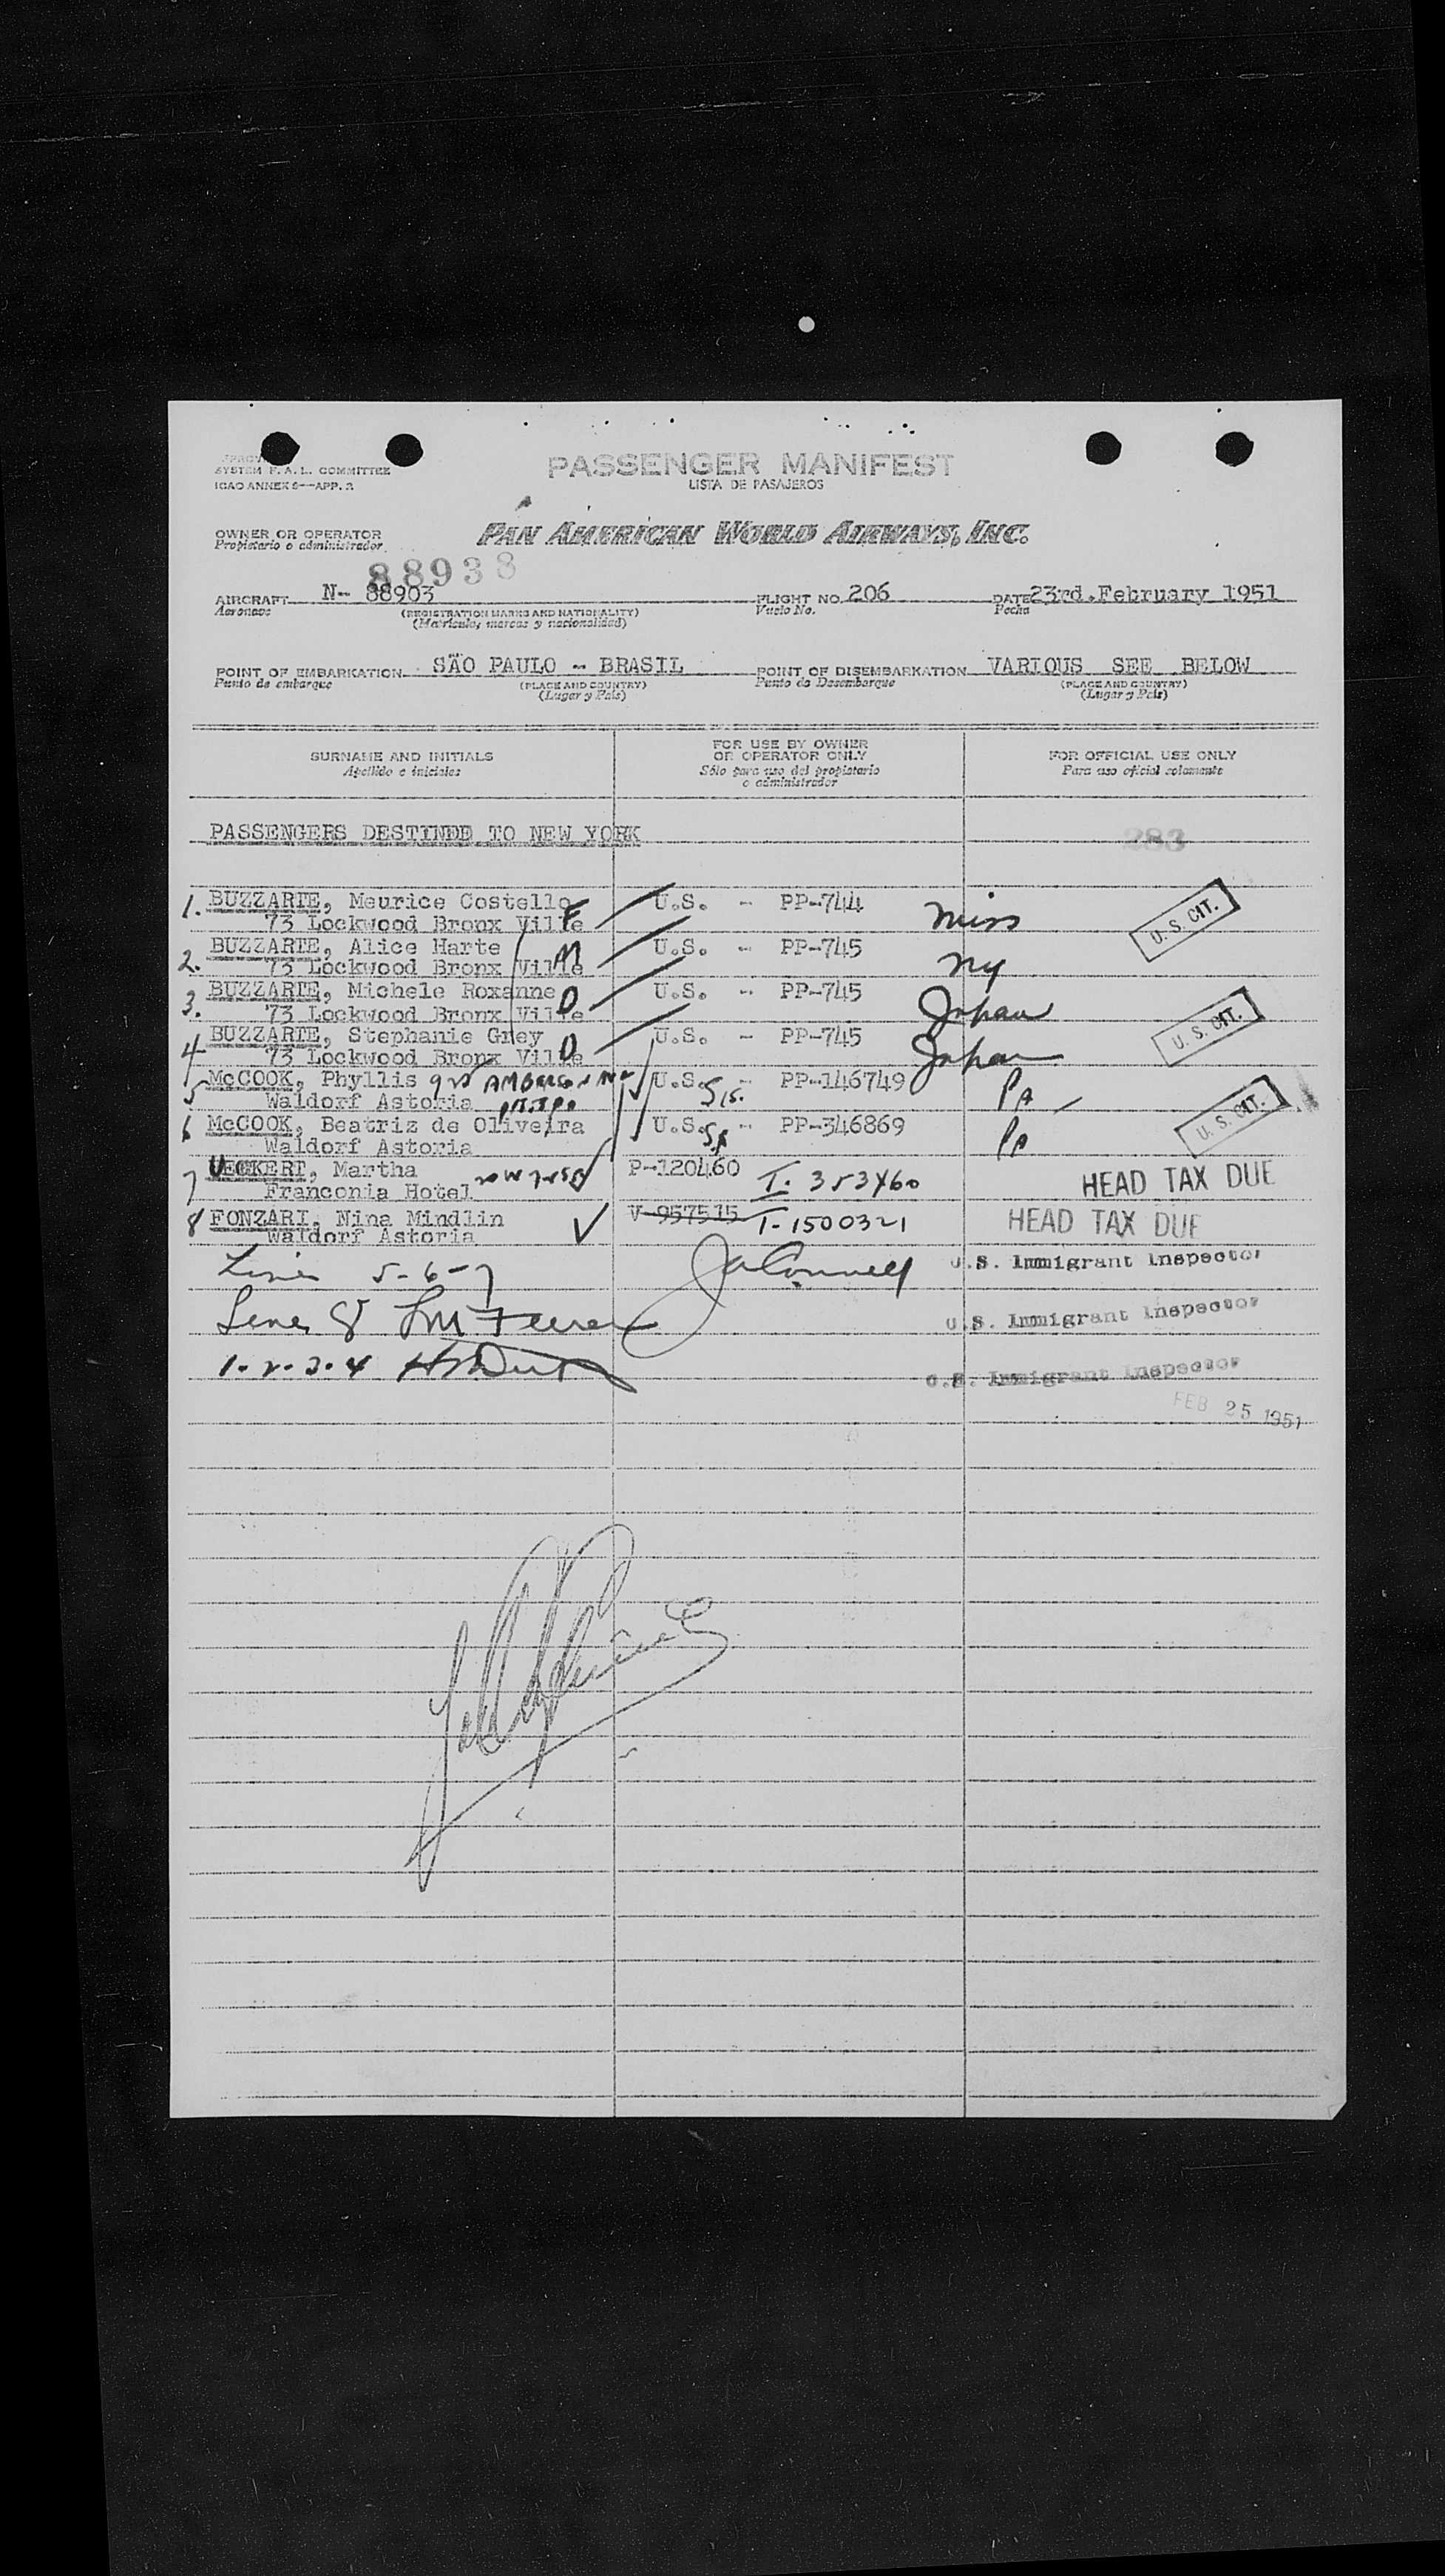 SYSTEM F. A. L. COMMITTEE
ICAO ANNEX 9--APP. 2
PASSENGER MANIFEST
LISTA DE PASAJEROS
OWNER OR OPERATOR
Propietario o administrador
PAN AMERICAN WORLD AIRWAYS, INC.
88938
AIRCRAFT N-- 88903 FLIGHT NO. 206 DATE 23rd.February 1951
Aeronave (REGISTRATION MARKS AND NATIONALITY) Vuelo No. Fecha
(Matrícula, marcas y nacionalidad)
POINT OF EMBARKATION SÃO PAULO -- BRASIL POINT OF DISEMBARKATION VARIOUS SEE BELOW
Punto de embarque (PLACE AND COUNTRY) Punto de Desembarque (PLACE AND COUNTRY)
(Lugar y País) (Lugar y País)
SURNAME AND INITIALS FOR USE BY OWNER OR OPERATOR ONLY FOR OFFICIAL USE ONLY
Apellido e iniciales Sólo para uso del propietario o administrador Para uso oficial solamente
PASSENGERS DESTINDD TO NEW YORK 283
1. BUZZARTE, Meurice Costello F U.S. - PP-744 Miss U. S. CIT.
73 Lockwood Bronx Ville
2. BUZZARTE, Alice Harte M U.S. - PP-745 NY
73 Lockwood Bronx Ville
3. BUZZARTE, Michele Roxanne D U.S. - PP-745 Japan U. S. CIT.
73 Lockwood Bronx Ville
4 BUZZARTE, Stephanie Grey D U.S. - PP-745 Japan
73 Lockwood Bronx Ville
5 McCOOK, Phyllis U.S. - PP-146749 Pa U. S. CIT.
Waldorf Astoria
6 McCOOK, Beatriz de Oliveira U.S. - PP-346869 Pa
Waldorf Astoria
7 UECKERT, Martha P-120460 T. 353460 HEAD TAX DUE
Franconia Hotel
8 FONZARI, Nina Mindlin V-957515 T-1500321 HEAD TAX DUE
Waldorf Astoria
5-6-7 U.S. Immigrant Inspector
8 U.S. Immigrant Inspector
1-2-3-4 U.S. Immigrant Inspector
FEB 25 1951